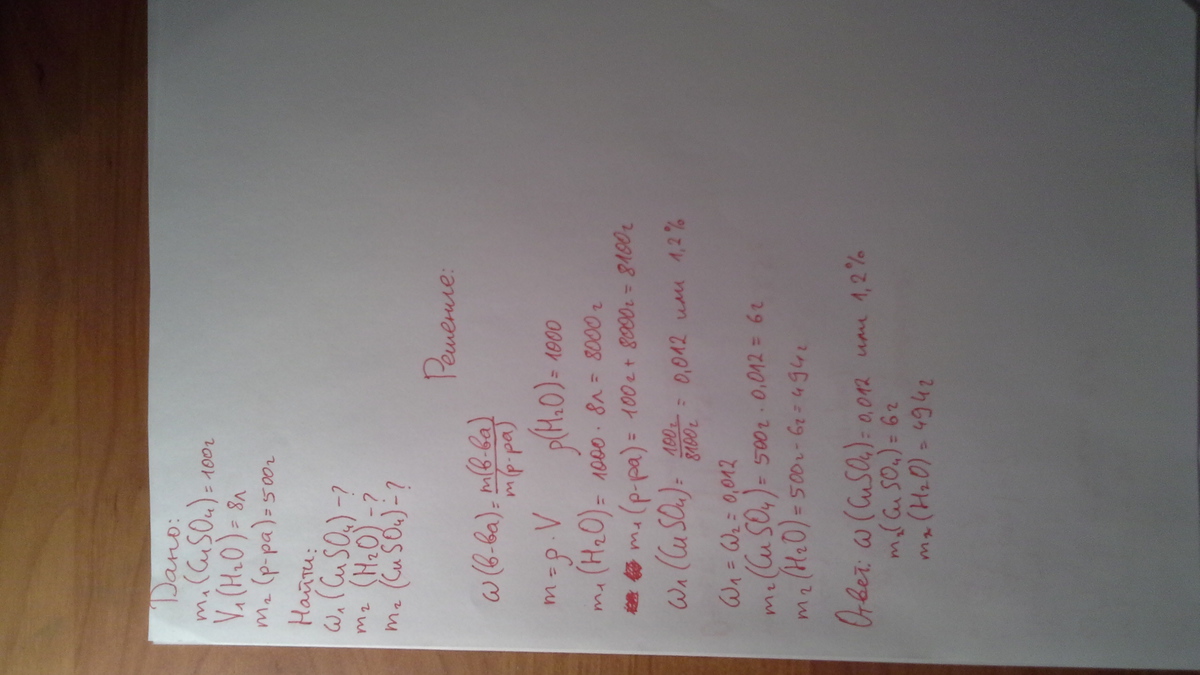 Дано:
m₁ (CuSO₄) = 100г
V₁ (H₂O) = 8л
m₂ (р-ра) = 500г
Найти:
ω₁ (CuSO₄) - ?
m₂ (H₂O) - ?
m₂ (CuSO₄) - ?
Решение:
ω (в-ва) = m(в-ва) / m(р-ра)
m = ρ · V ρ(H₂O) = 1000
m₁ (H₂O) = 1000 · 8л = 8000г
m₁ (р-ра) = 100г + 8000г = 8100г
ω₁ (CuSO₄) = 100г / 8100г = 0,012 или 1,2%
ω₁ = ω₂ = 0,012
m₂ (CuSO₄) = 500г · 0,012 = 6г
m₂ (H₂O) = 500г - 6г = 494г
Ответ: ω (CuSO₄) = 0,012 или 1,2%
m₂ (CuSO₄) = 6г
m₂ (H₂O) = 494г